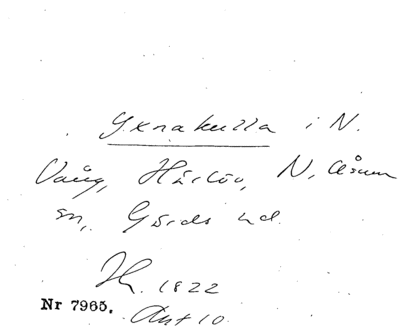 Yxnakulla i N.
Vång, Härlöv, N. Åsum
sn, Gärds hd.
1822
Nr 7965.
Akt 10